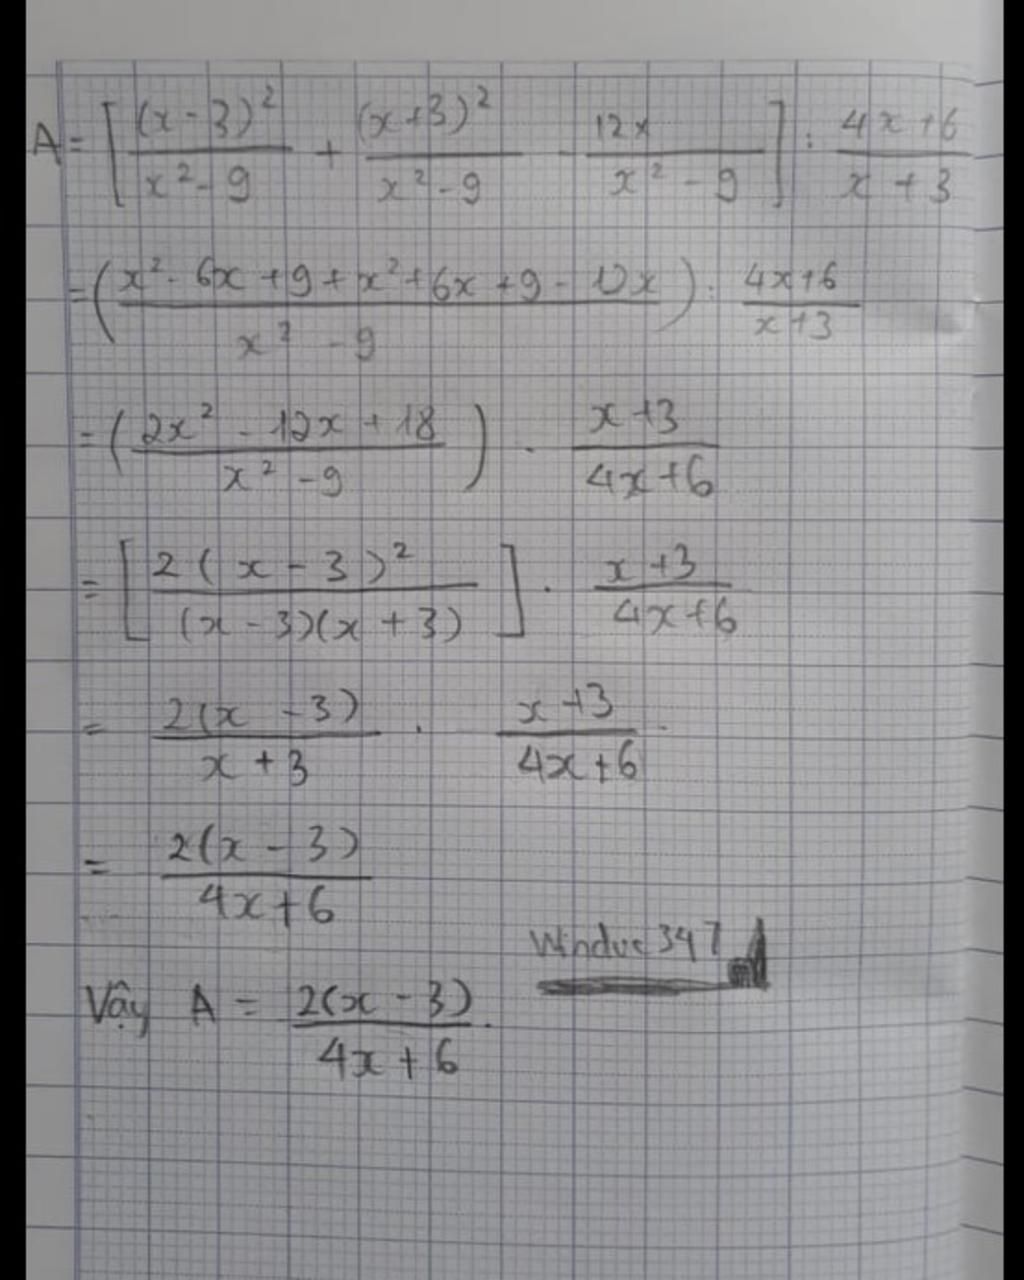 A = [ (x - 3)² / (x² - 9) + (x + 3)² / (x² - 9) - 12x / (x² - 9) ] : (4x + 6) / (x + 3)
= ( (x² - 6x + 9 + x² + 6x + 9 - 12x) / (x² - 9) ) : (4x + 6) / (x + 3)
= ( (2x² - 12x + 18) / (x² - 9) ) . (x + 3) / (4x + 6)
= [ 2(x - 3)² / (x - 3)(x + 3) ] . (x + 3) / (4x + 6)
= 2(x - 3) / (x + 3) . (x + 3) / (4x + 6)
= 2(x - 3) / (4x + 6)
Winduc347
Vậy A = 2(x - 3) / (4x + 6).